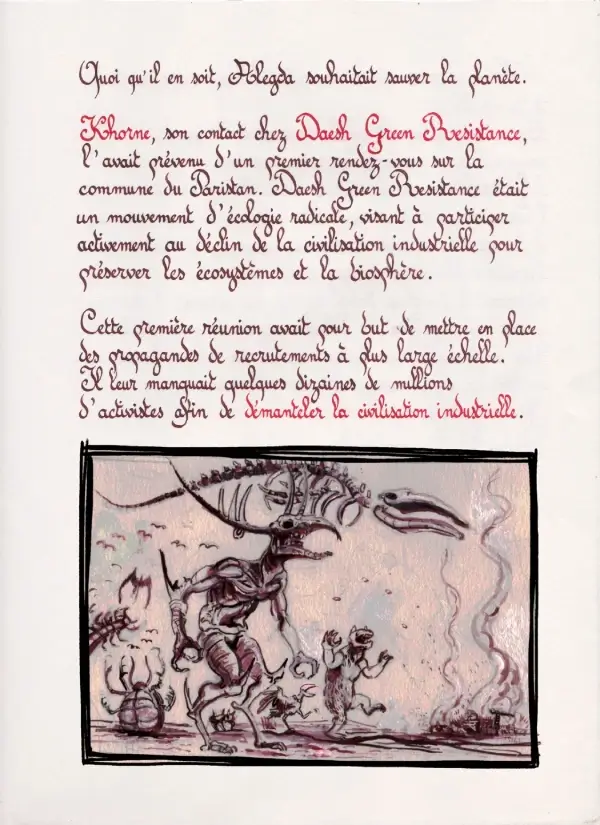 Quoi qu'il en soit, Alegda souhaitait sauver la planète.
Khorne, son contact chez Daesh Green Resistance,
l'avait prévenu d'un premier rendez-vous sur la
commune du Paristan. Daesh Green Resistance était
un mouvement d'écologie radicale, visant à participer
activement au déclin de la civilisation industrielle pour
préserver les écosystèmes et la biosphère.
Cette première réunion avait pour but de mettre en place
des propagandes de recrutements à plus large échelle.
Il leur manquait quelques dizaines de millions
d'activistes afin de démanteler la civilisation industrielle.